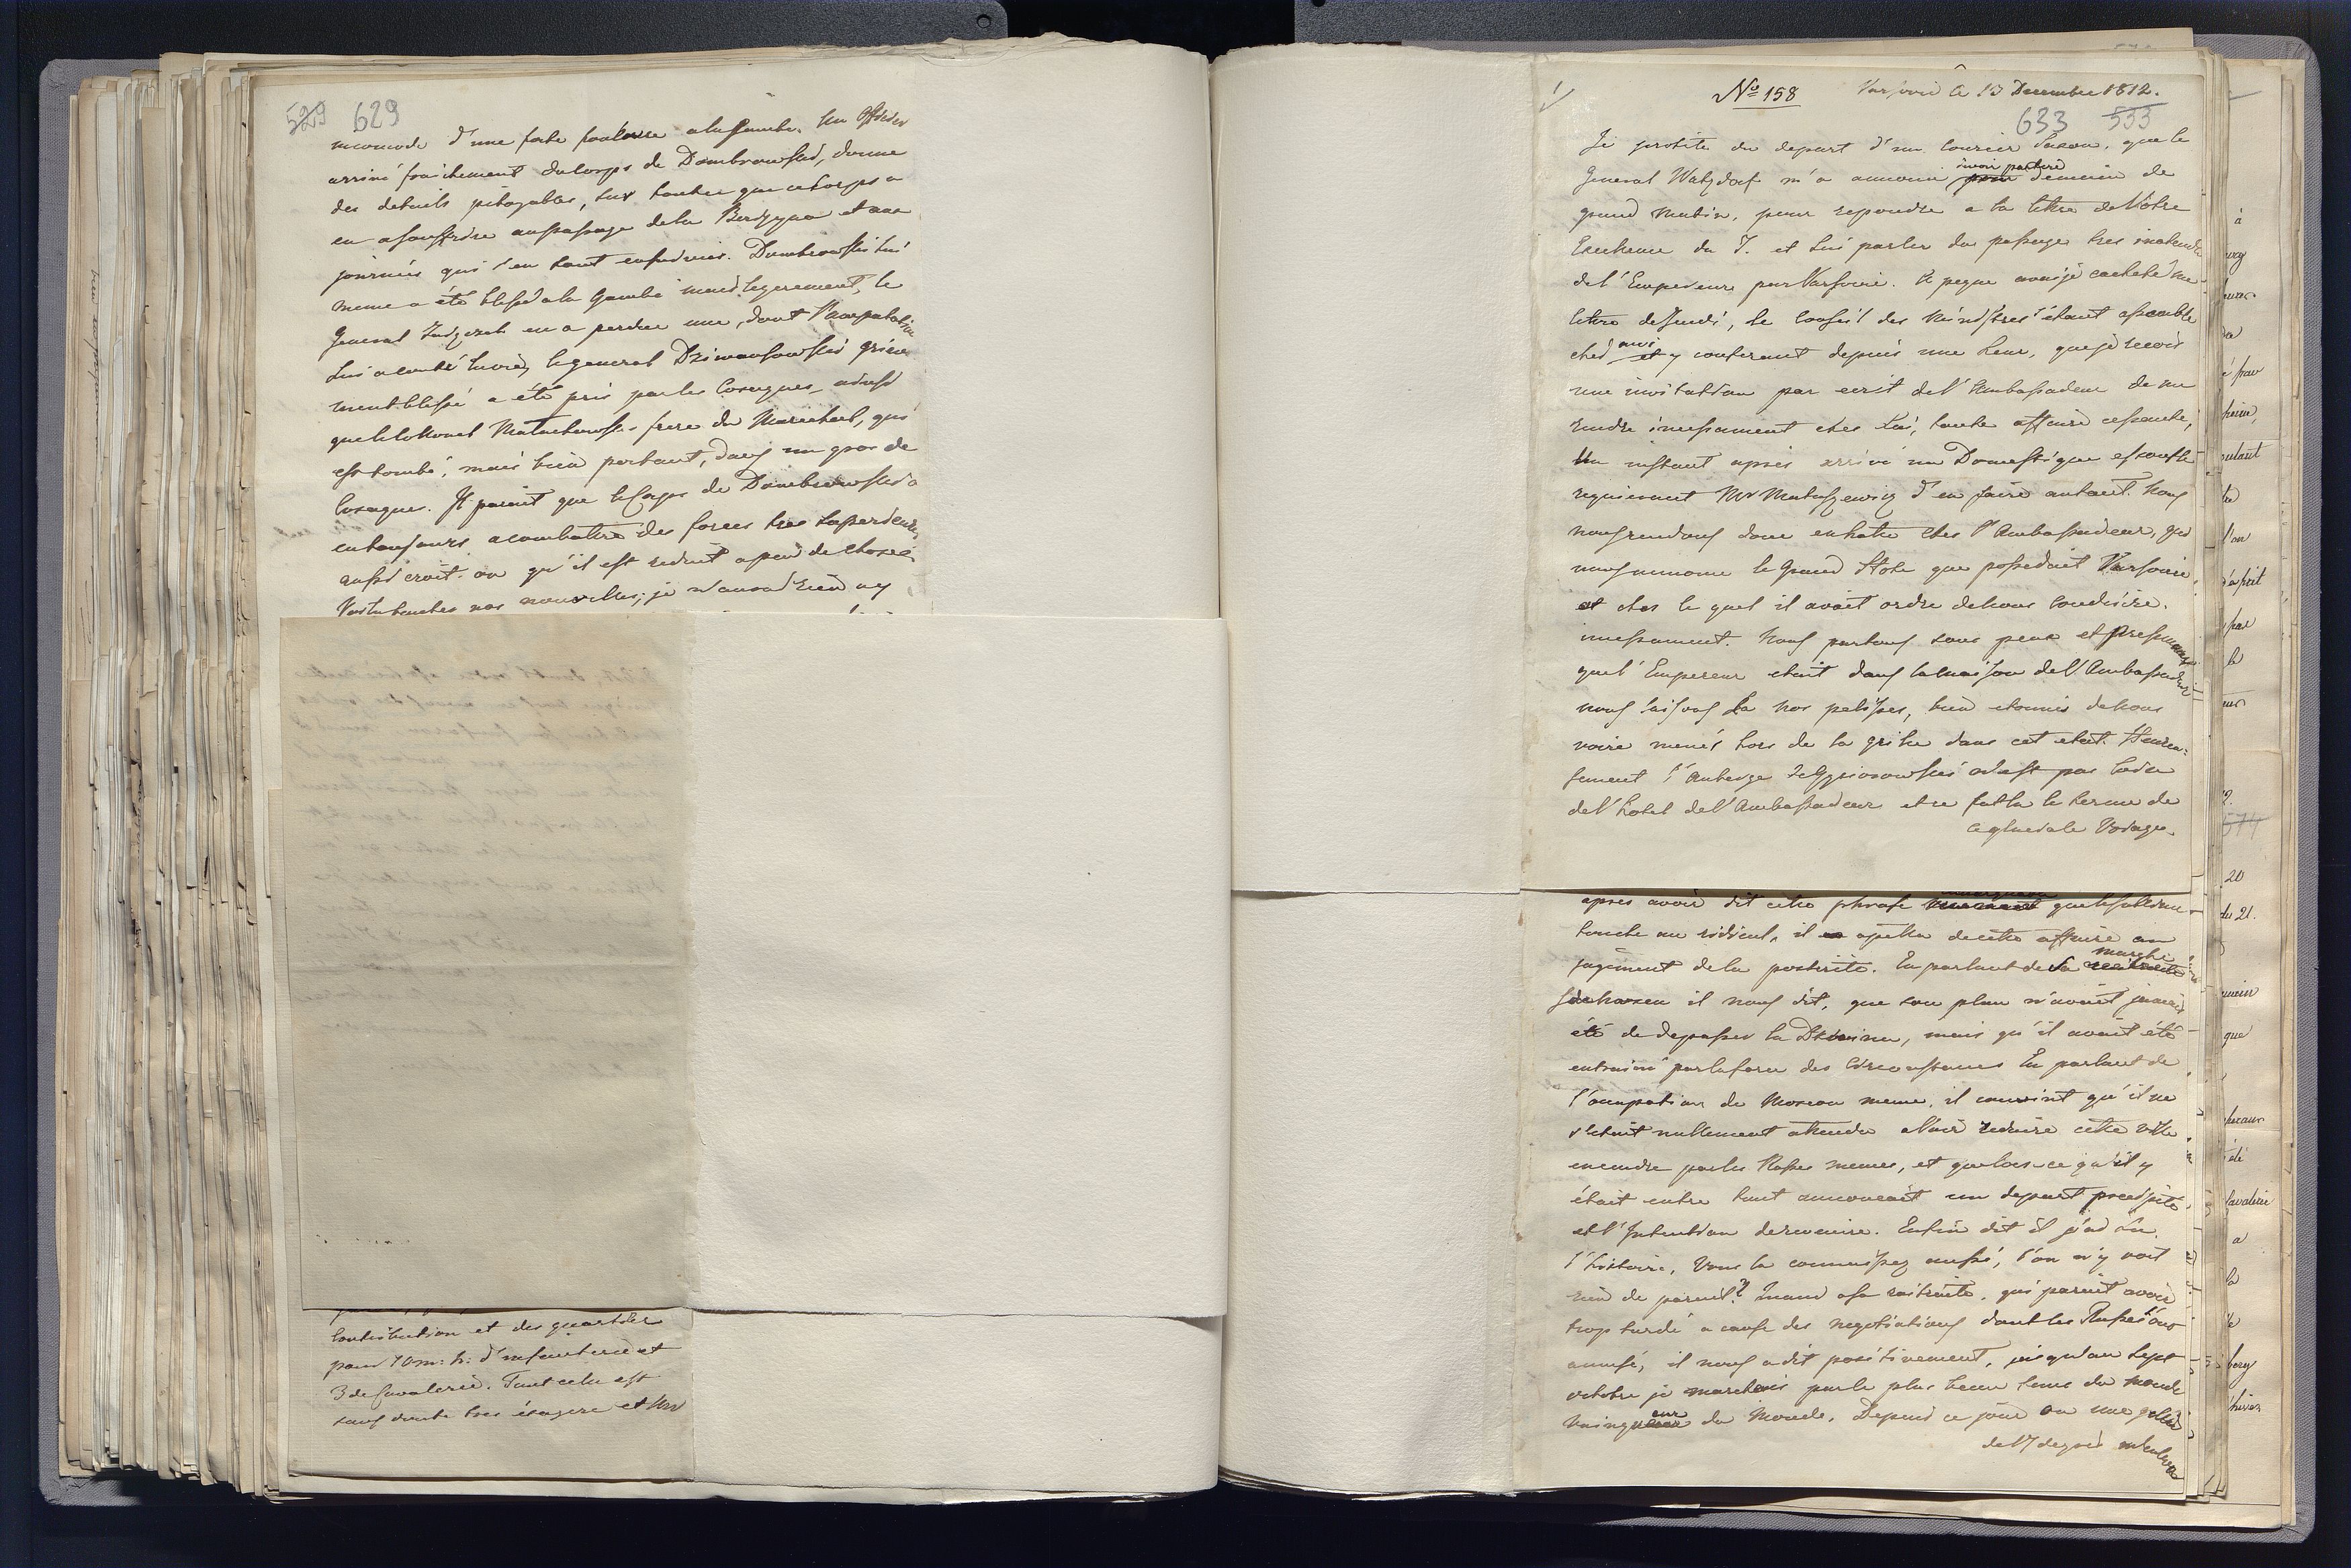 529 629
incomodé d'une forte foulure a la jambe. Un Officier
arrivé fraichement du corps de Dombrowski, donne
des details pitoyables, sur toutce que ce Corps a
eu a souffrire au passage de la Berezyna et aux
journées qui s'en sont ensuivies. Dombrowski lui
meme a été blessé a la jambe mais legerement, le
General Zajączek en a perdue une, dont l'amputation
lui a couté la vie, le general Dziewanowski griève
ment blessé a été pris par les Cosaques, ainsi
que le Colonel Małachowski frere du Marechal, qui
est tombé, mais bien portant, dans un gros de
Cosaques. Il parait que le Corps de Dombrowski a
eu toujours a combattre des forces tres superieures
aussi croit-on qu'il est reduit a peu de chose.
nos nouvelles; je n'aurai rien a y
Contribution et des quartier
pour 10m: h: d'infanterie et
3 de Cavalerie. Tout cela est
sans doute tres exagere et
No 158 Varsovie le 13 Decembre 1812.
633 533
Je profite du depart d'un Courier Saxon, que le
General Watzdorf m'a annoncé devoir partire demain de
grand matin, pour repondre a la lettre de Votre
Excellence du 7. et lui parler du passage tres inatendu
de l'Empereur par Varsovie. A peine avai-je cacheté ma
lettre de Jeudi, le Conseil des Ministres étant assemblé
chez moi et y conferant depuis une heur, que je recois
une invitation par ecrit de l'Ambassadeur de me
rendre incessament chez Lui, toute affaire cessante,
Un instant apres arrive un Domestique essouflé
requierant Mr Matuszewicz d'en faire autant. Nous
nous rendons donc en hate chez l'Ambassadeur, qui
nous annonce le Grand Hote que possedait Varsovie,
et chez le quel il avait ordre de nous conduire.
incessament. Nous partons sans peur et presumant
que l'Empereur etait dans la maison de l'Ambassadeur
nous laissons la nos pelisses, bien etonnés de nous
voire menés hors de la grille dans cet etat. Heureu-
sement l'Auberge de Gąsiorowski n'est pas loin
de l'hotel de l'Ambassadeur et ce fut la le terme de
ce glacial Voyage.
apres avoir dit cette phrase que le sublime
touche au ridicul, il apella de cette affaire au
jugement de la posterité. En parlant de sa marche
il nous dit, que son plan n'avait jamais
été de depasser la Dzwina, mais qu'il avait été
entrainé par la force des circonstances En parlant de
l'occupation de Moscou meme, il convint qu'il ne
s'etait nullement atendu a voir reduire cette ville
en cendre par les Russes memes, et que lors-ce qu'il y
était entré tout annoncait un depart precipité
et l'Intention de revenire. Enfin dit il j'ai lu
l'histoire, Vous la connaissez aussi, l'on n'y voit
rien de pareil? Quand a sa retraite, qui parait avoir
trop tardé a cause des negotiations dont les Russes l'ont
amusé, il nous a dit positivement, jusqu'au sept
octobre je marchais par le plus beau tems du monde
Vainqueur du Monde. Depuis ce jour ou une gelée
de 7 degrés m'enleva